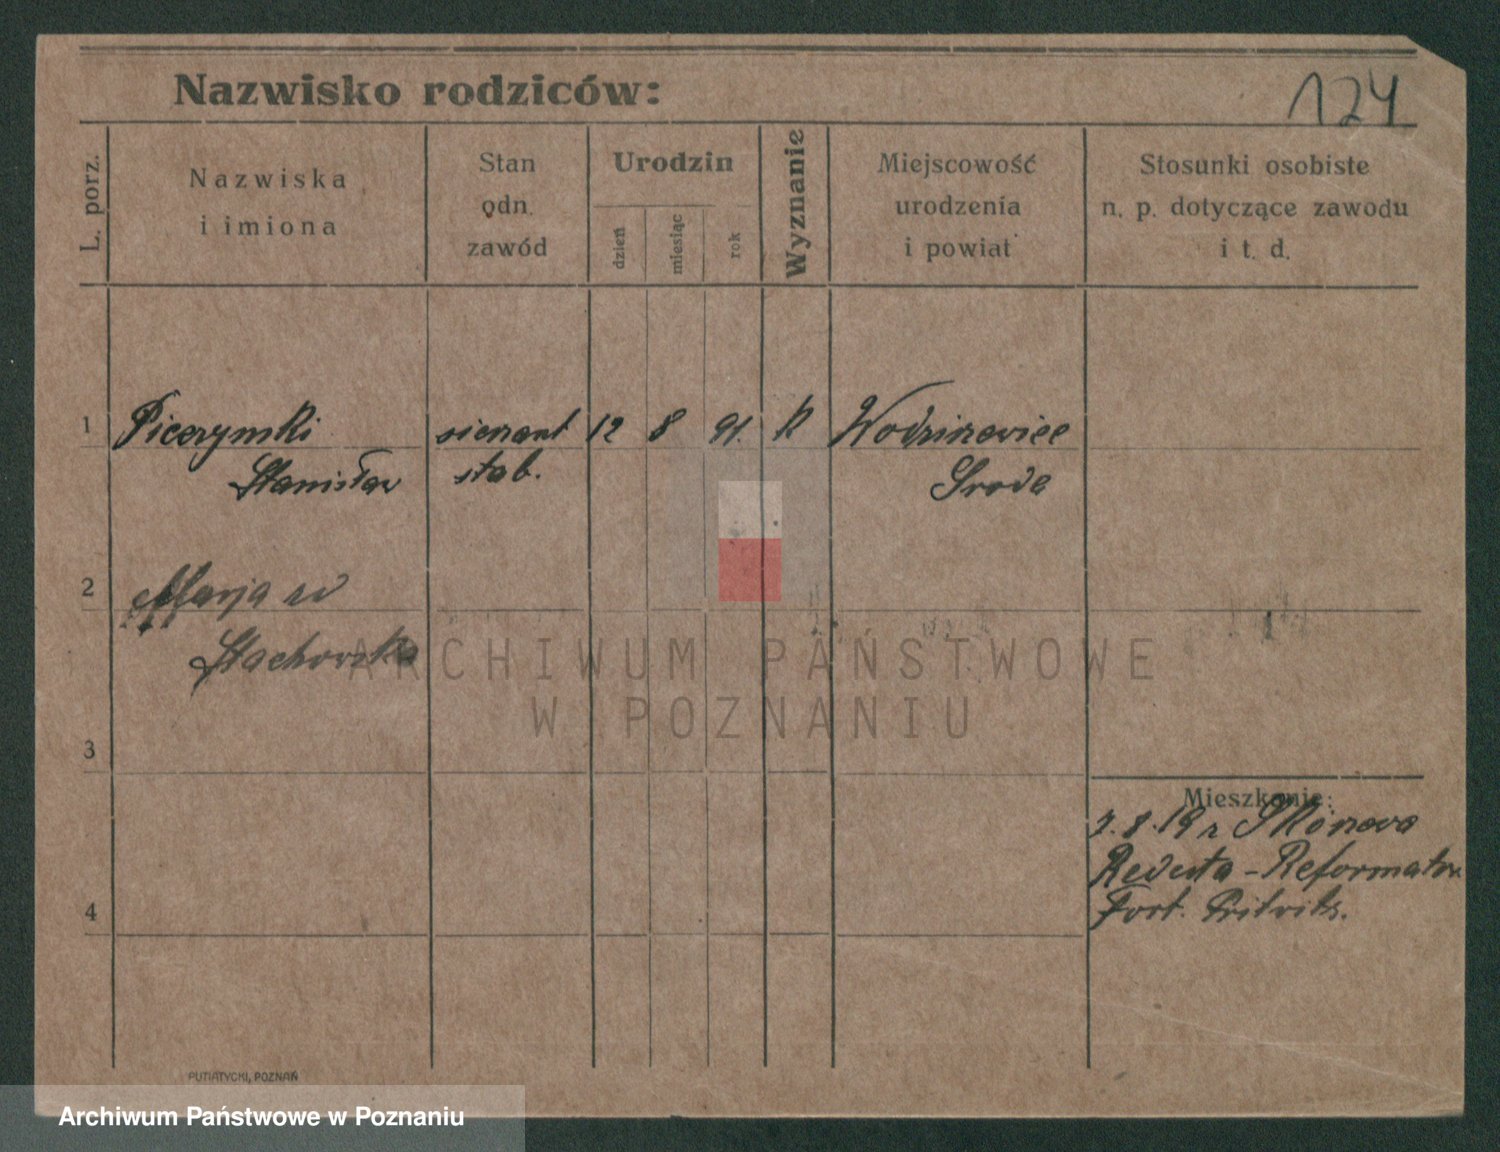 Nazwisko rodziców:
124
L. porz.
Nazwiska
i imiona
Stan
odn.
zawód
Urodzin
dzień
miesiąc
rok
Wyznanie
Miejscowość
urodzenia
i powiat
Stosunki osobiste
n. p. dotyczące zawodu
i t. d.
1
12 8 91. K
Stanisław
stab.
Środa
2
Marja
3
Mieszkanie:
7.8.19 r
Reduta - Reformatów
4
Fort.
PUTIATYCKI, POZNAŃ
ARCHIWUM PAŃSTWOWE
W POZNANIU
Archiwum Państwowe w Poznaniu